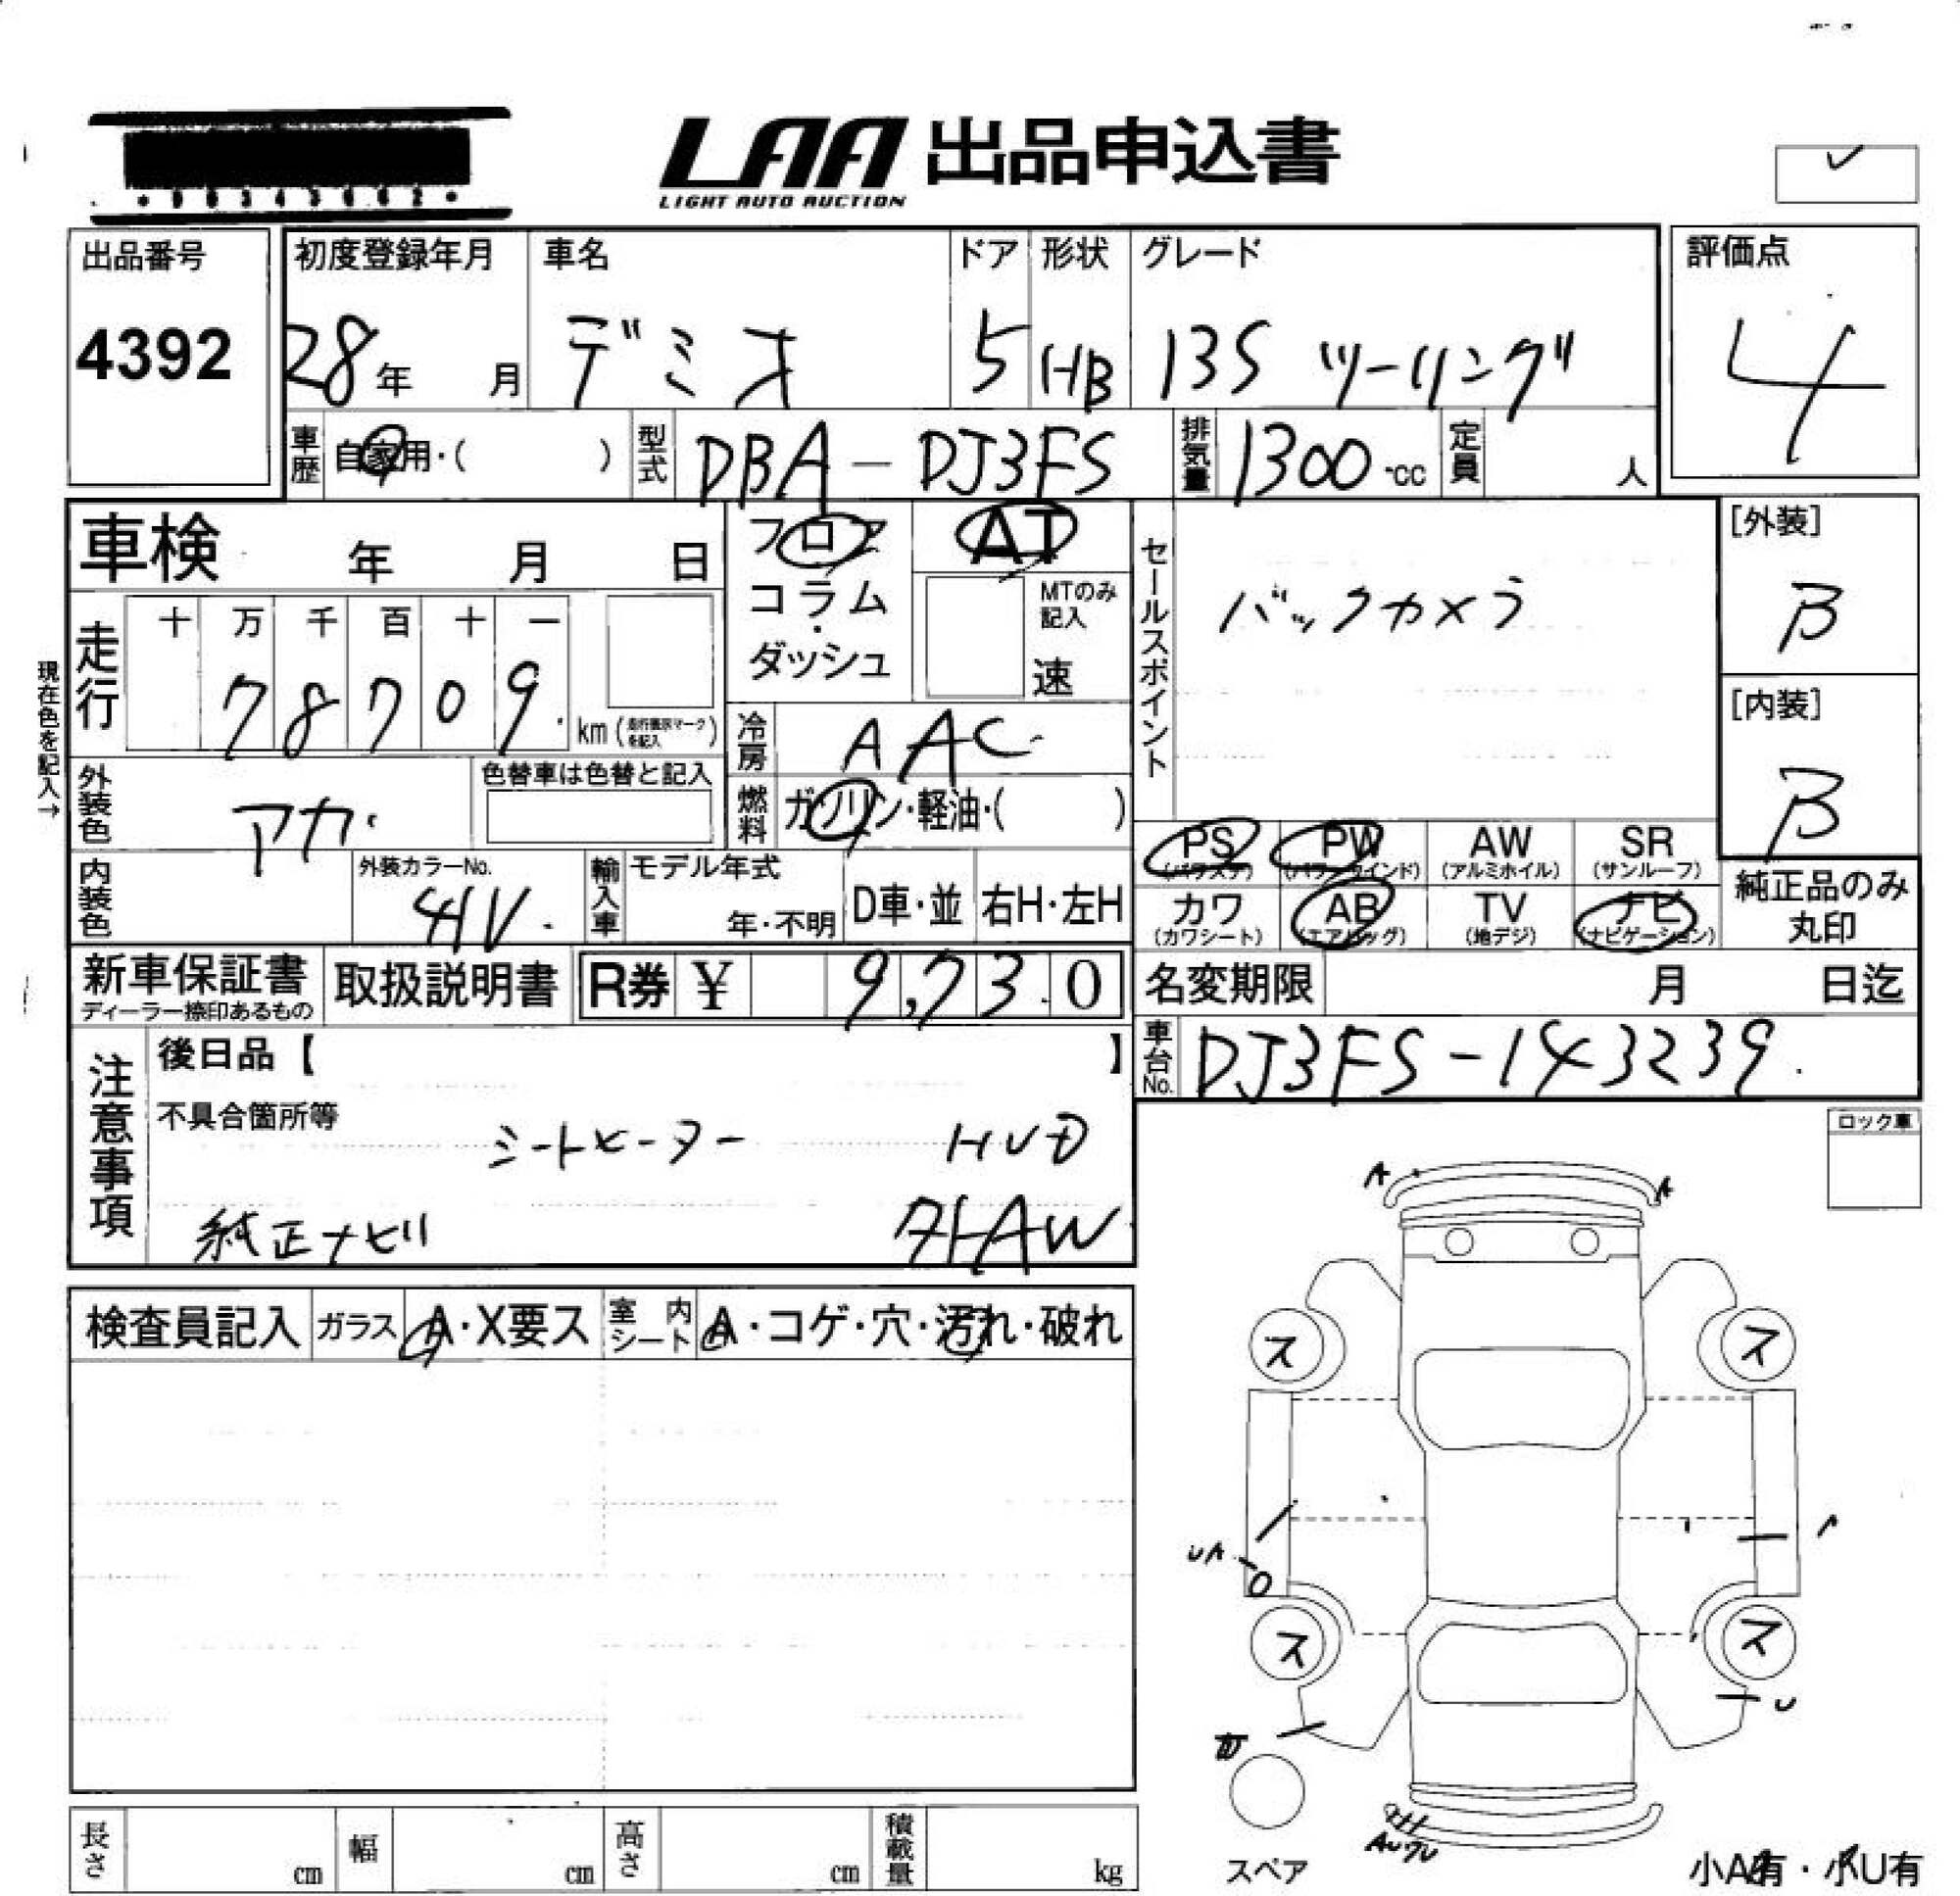 LAA 出品申込書
LIGHT AUTO AUCTION
出品番号
4392
初度登録年月
28年 月
車名
デミオ
ドア
5
形状
HB
グレード
13S ツーリング
評価点
4
車歴 自家用・( )
型式 DBA-DJ3FS
排気量 1300 cc
定員 人
車検 年 月 日
フロア
コラム
・
ダッシュ
AT
MTのみ記入
速
セールスポイント
バックカメラ
[外装]
B
[内装]
B
現在色を記入→
走行
十 万 千 百 十 一
7 8 7 0 9
km (走行表示マークを記入)
冷房 AAC
外装色 アカ
色替車は色替と記入
燃料 ガソリン・軽油・( )
内装色
外装カラーNo.
41V
輸入車
モデル年式
年・不明
D車・並
右H・左H
PS (パワステ)
PW (パワーウインド)
AW (アルミホイル)
SR (サンルーフ)
カワ (カワシート)
AB (エアバッグ)
TV (地デジ)
ナビ (ナビゲーション)
純正品のみ
丸印
新車保証書
ディーラー捺印あるもの
取扱説明書
R券 ¥ 9,730
名変期限 月 日迄
車台No. DJ3FS-143239
注意事項
後日品【 】
不具合箇所等
シートヒーター HUD
純正ナビ 外AW
ロック車
A A
検査員記入
ガラス A・X要ス
室内シート A・コゲ・穴・汚れ・破れ
ス ス
UA
ス ス
U
スペア
小A有・小U有
長さ cm
幅 cm
高さ cm
積載量 kg